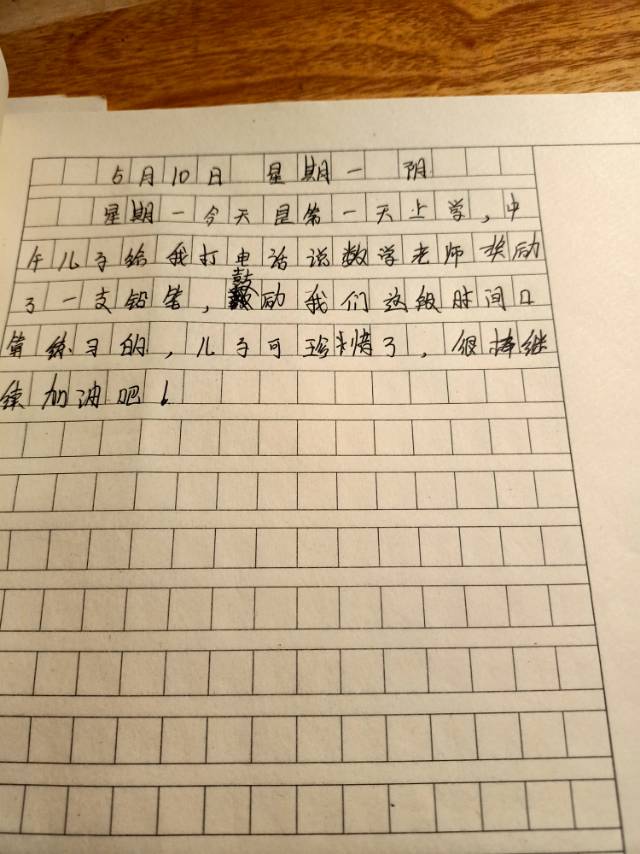 5月10日 星期一 阴
星期一今天是第一天上学,中
午儿子给我打电话说数学老师奖励
了一支铅笔,鼓励我们这段时间口
算练习的,儿子可珍惜了,很棒继
续加油吧!